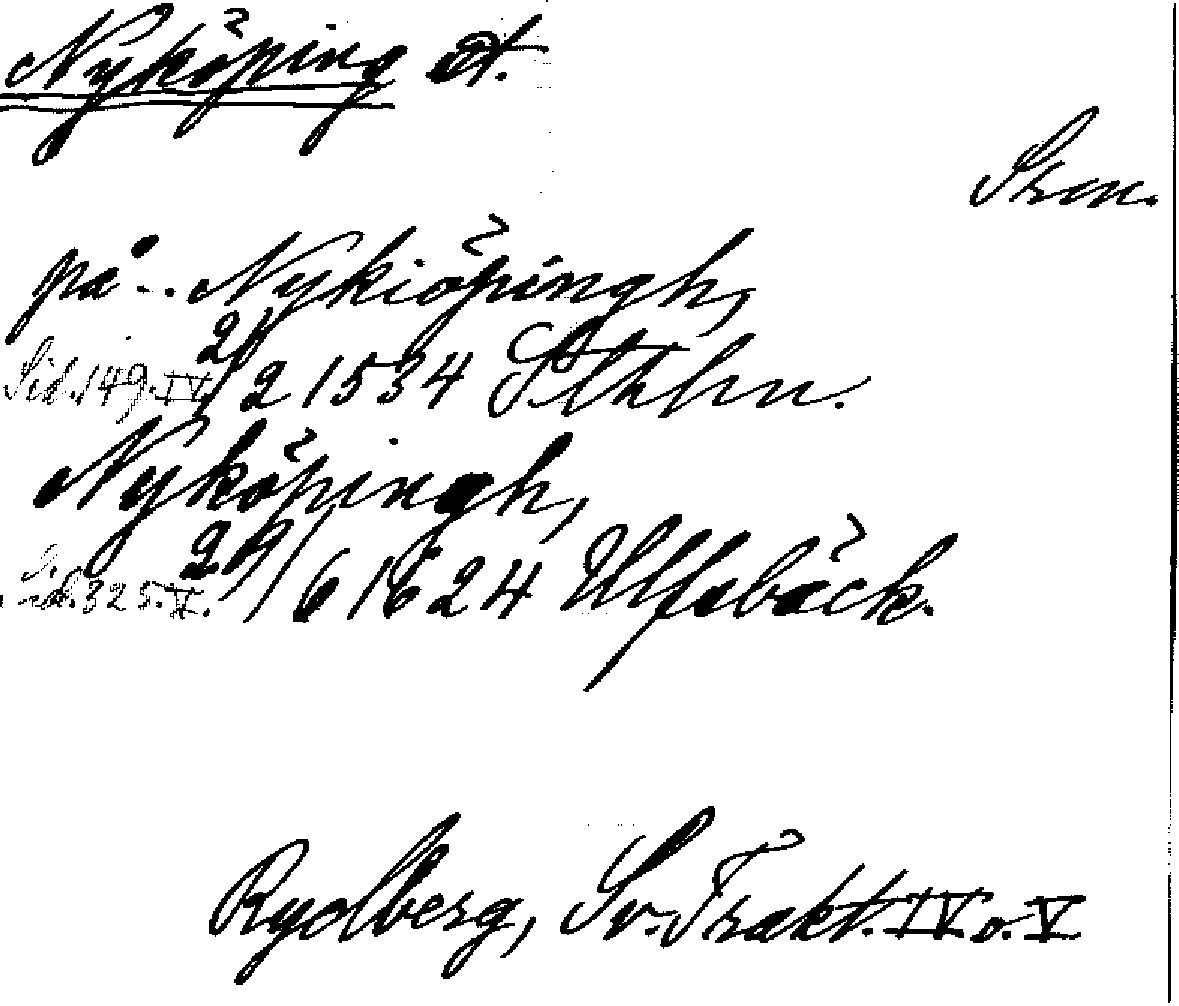 Nyköping st.
Srm.
på .. Nykiöpingh,
Sid. 149. IV. 21/2 1534 Sthlm.
Nyköpingh,
Sid. 325. V. 29/6 1624 Ulfsbäck.
Rydberg, Sv. Trakt. IV o. V